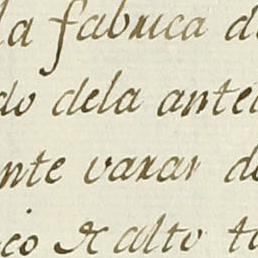 la fabrica d
do dela ante
nte varar d
co & alto t